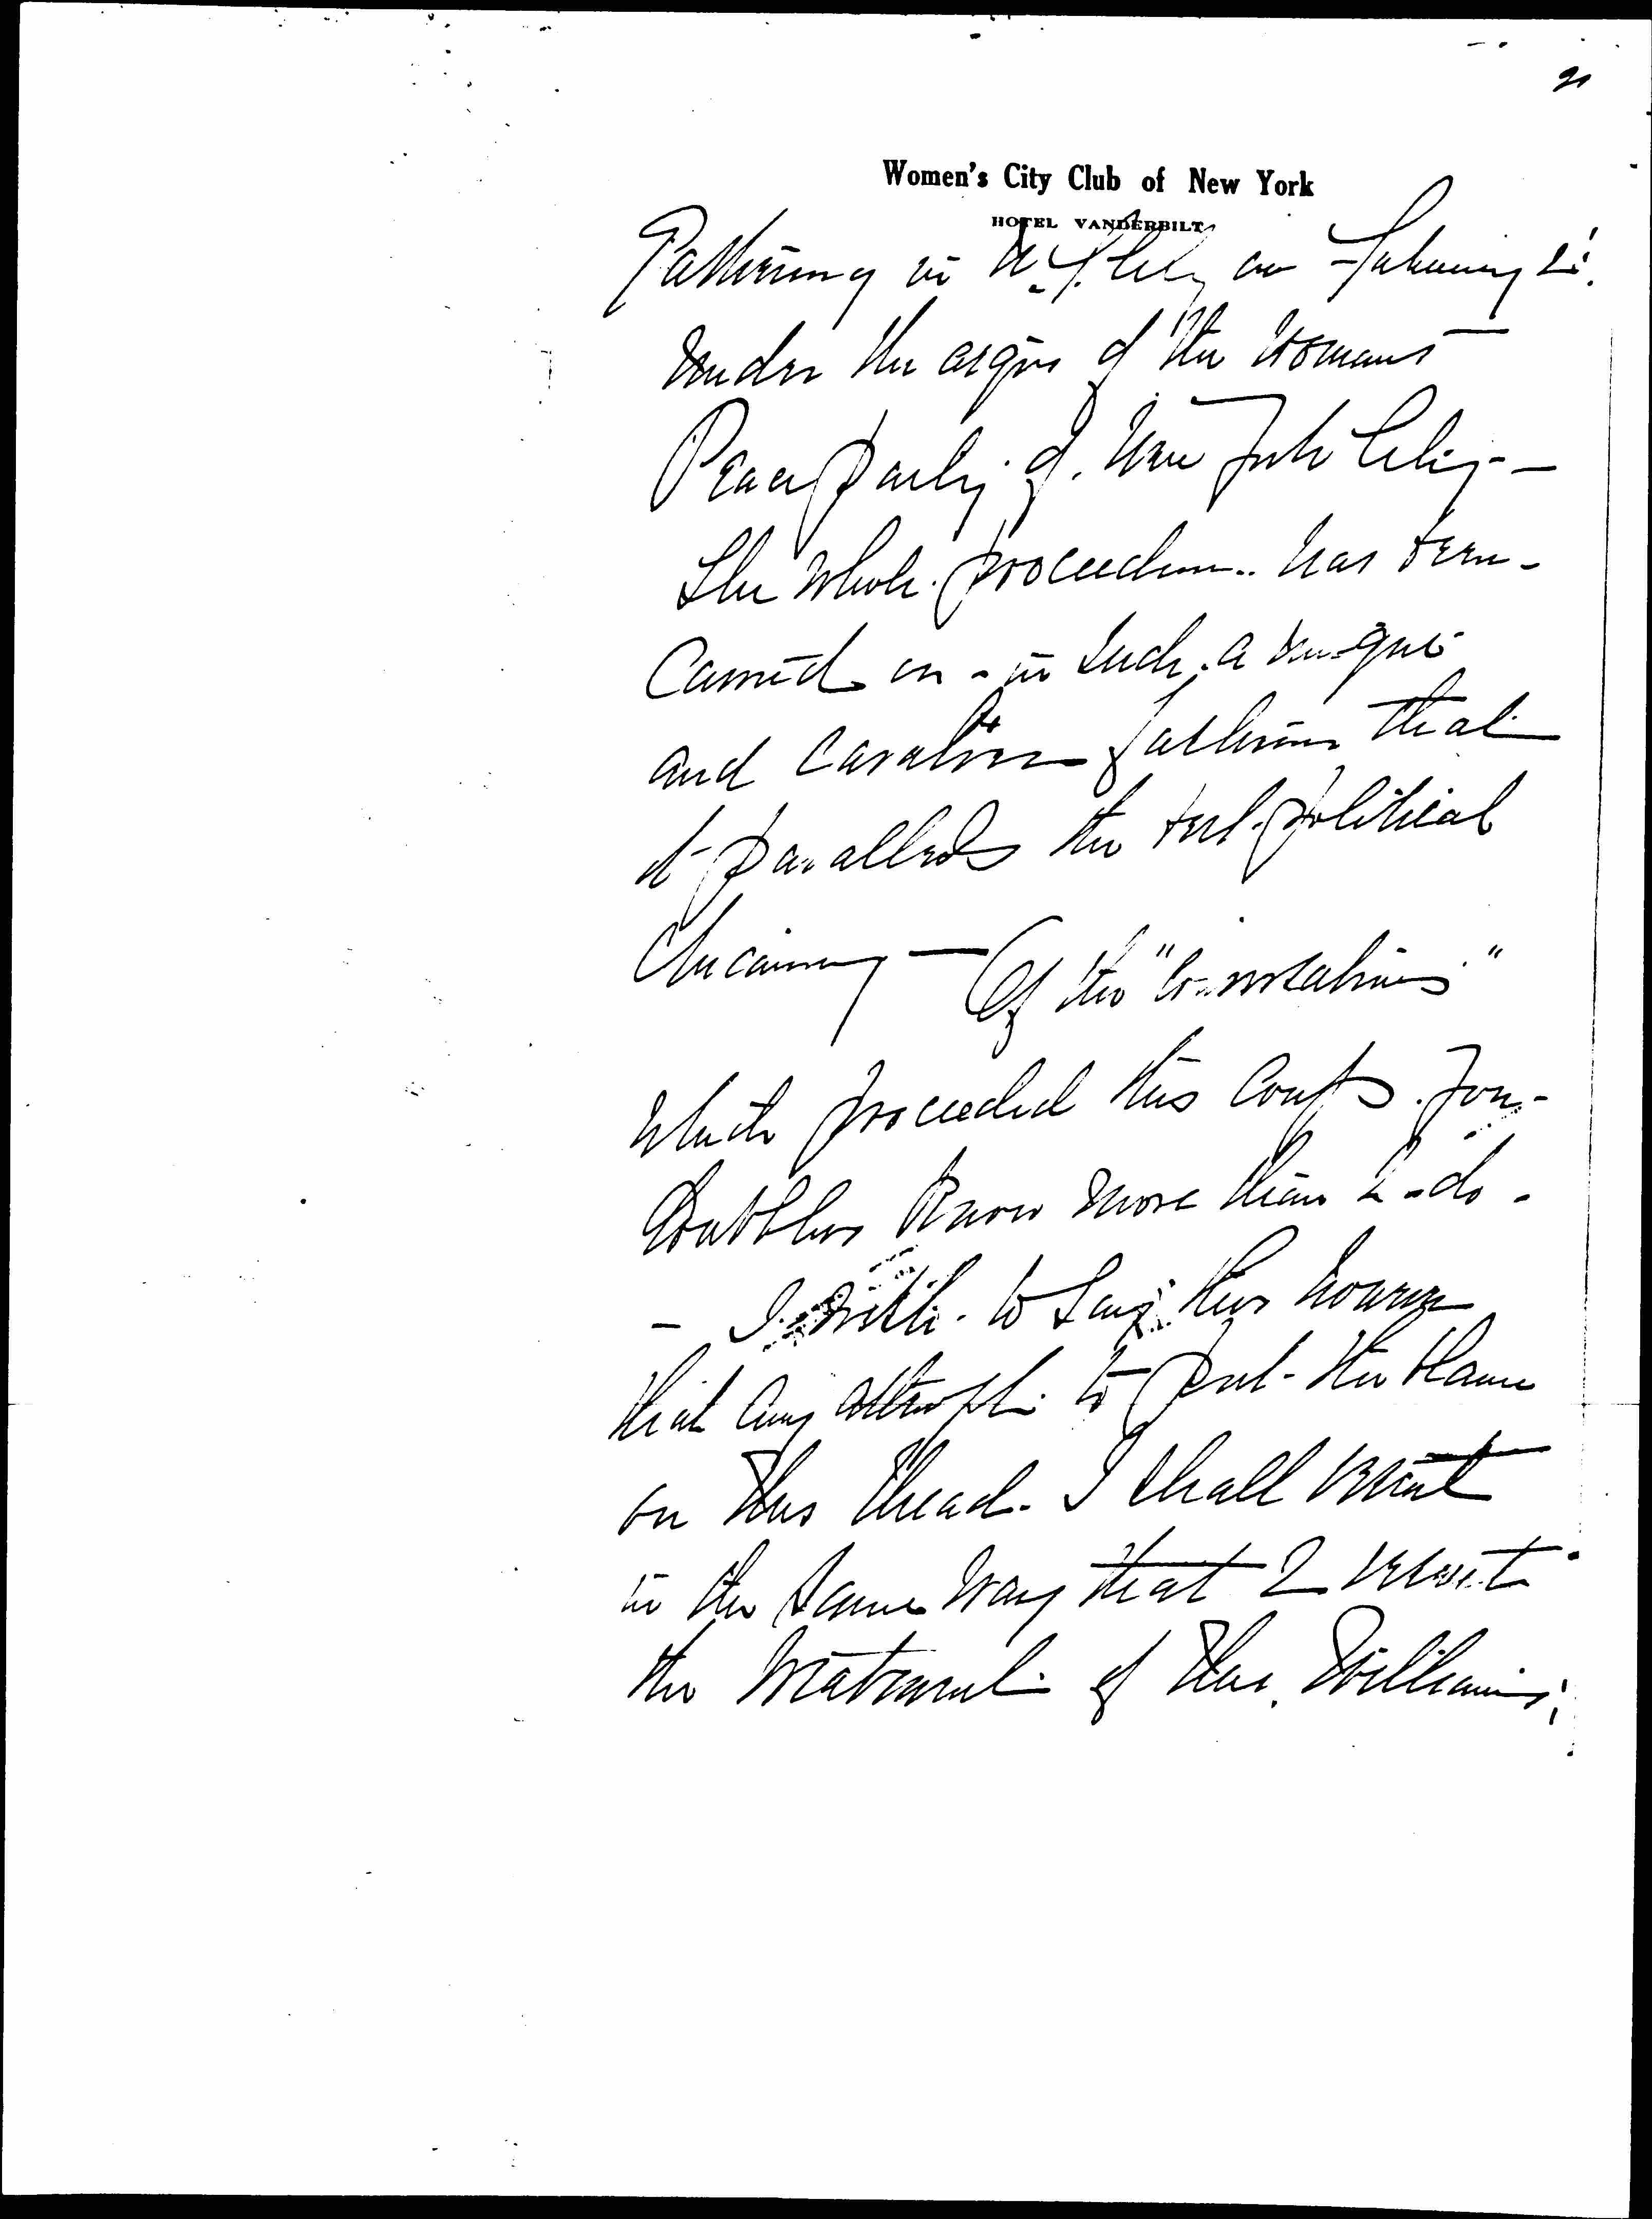 Women's City Club of New York
HOTEL VANDERBILT
Gathering in N.Y. City on
under the aegis of the Womans
Peace Party of New York City -
The whole proceeding has been
Carried on - in such a
and Cavalier fashion that
it parallels the best political
Chicanery — Of the "Conversations"
which proceeded this Coup you
Doubtless know more than I do -
- I wish to say this however
that any attempt to put the blame
on this head I shall resent
in the same way that I resent
the treatment of Mrs. Williams;